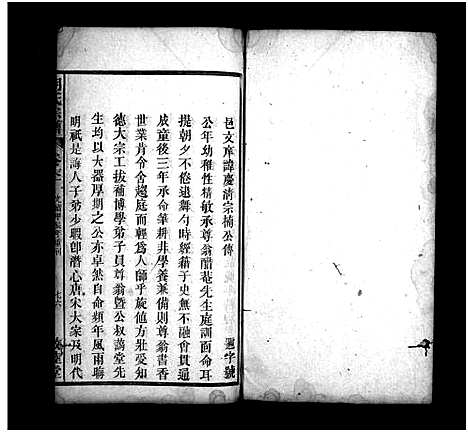 邑文庠諱慶清宗楠公傳
公年幼稚性精敏承尊翁醋菴先生庭訓面命耳
提朝夕不倦迨舞勺時經藉子史無不融會貫通
成童後三年承命筆耕非學養兼備則尊翁書香
世業肯令舍趨庭而輕爲人師乎旋値方壯受知
德大宗工拔補博學弟子員尊翁曁公叔萬堂先
生均以大器厚期之公亦卓然自命頻年風雨聯
明祇是誨人子弟少暇卽潛心唐宋大家及明代